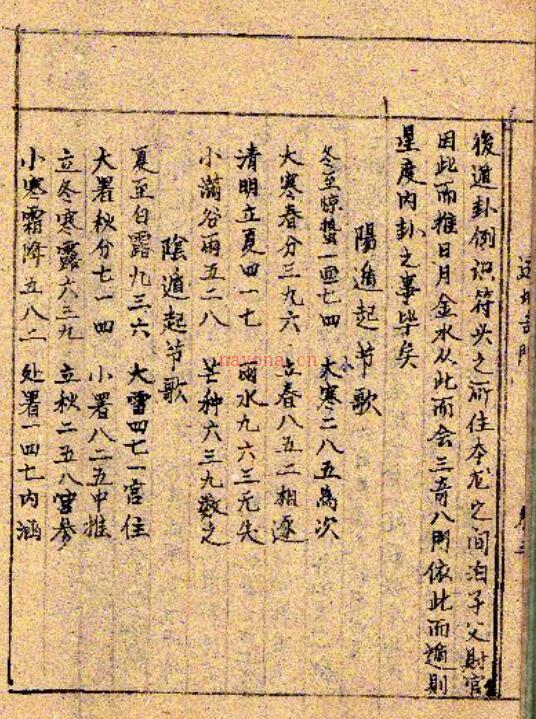 後遁卦例识符头之所住本龙之间泊子父财官
因此而推日月金水从此而会三奇八門依此而遁則
星度内卦之事毕矣
陽遁起节歌
冬至惊蛰一面七四 大寒二八五為次
大寒春分三九六 立春八五二相逐
清明立夏四一七 雨水九六三无失
小滿谷雨五二八 芒种六三九数之
陰遁起节歌
夏至白露九三六 大雪四七一宫住
大署秋分七一四 小署八二五中推
立冬寒露六三九 立秋二五八宫参
小寒霜降五八二 处署一四七内涵
nayona.cn